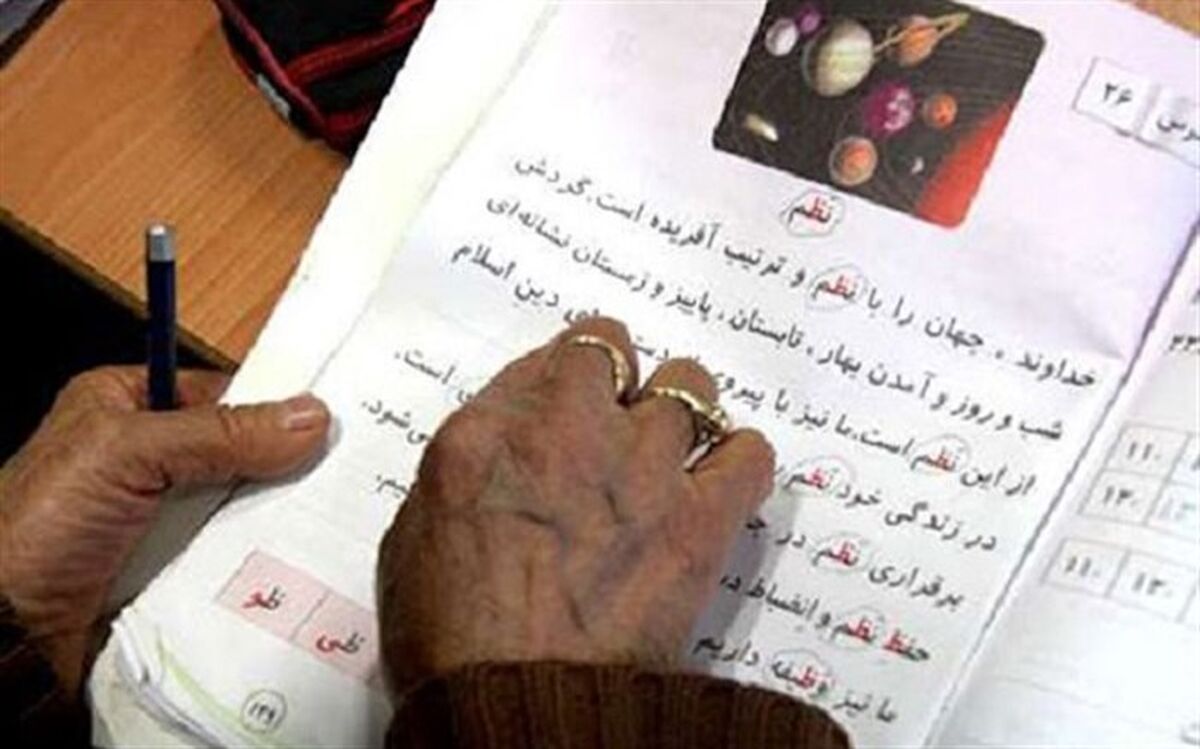 درس
۲۶
نَظم
خداوند، جهان را با نَظم و ترتیب آفریده است. گردش
شب و روز و آمدن بهار، تابستان، پاییز و زمستان نشانه‌ای
از این نَظم است. ما نیز با پیروی دین اسلام
در زندگی خود نَظم است.
برقراری نَظم در می‌شود.
حفظ نَظم و انضباط
ما نیز وظیفه داریم
ظو
ظی
۱۲۹
۱۱۰
۱۳۰
۱۱۰
۱۳۰